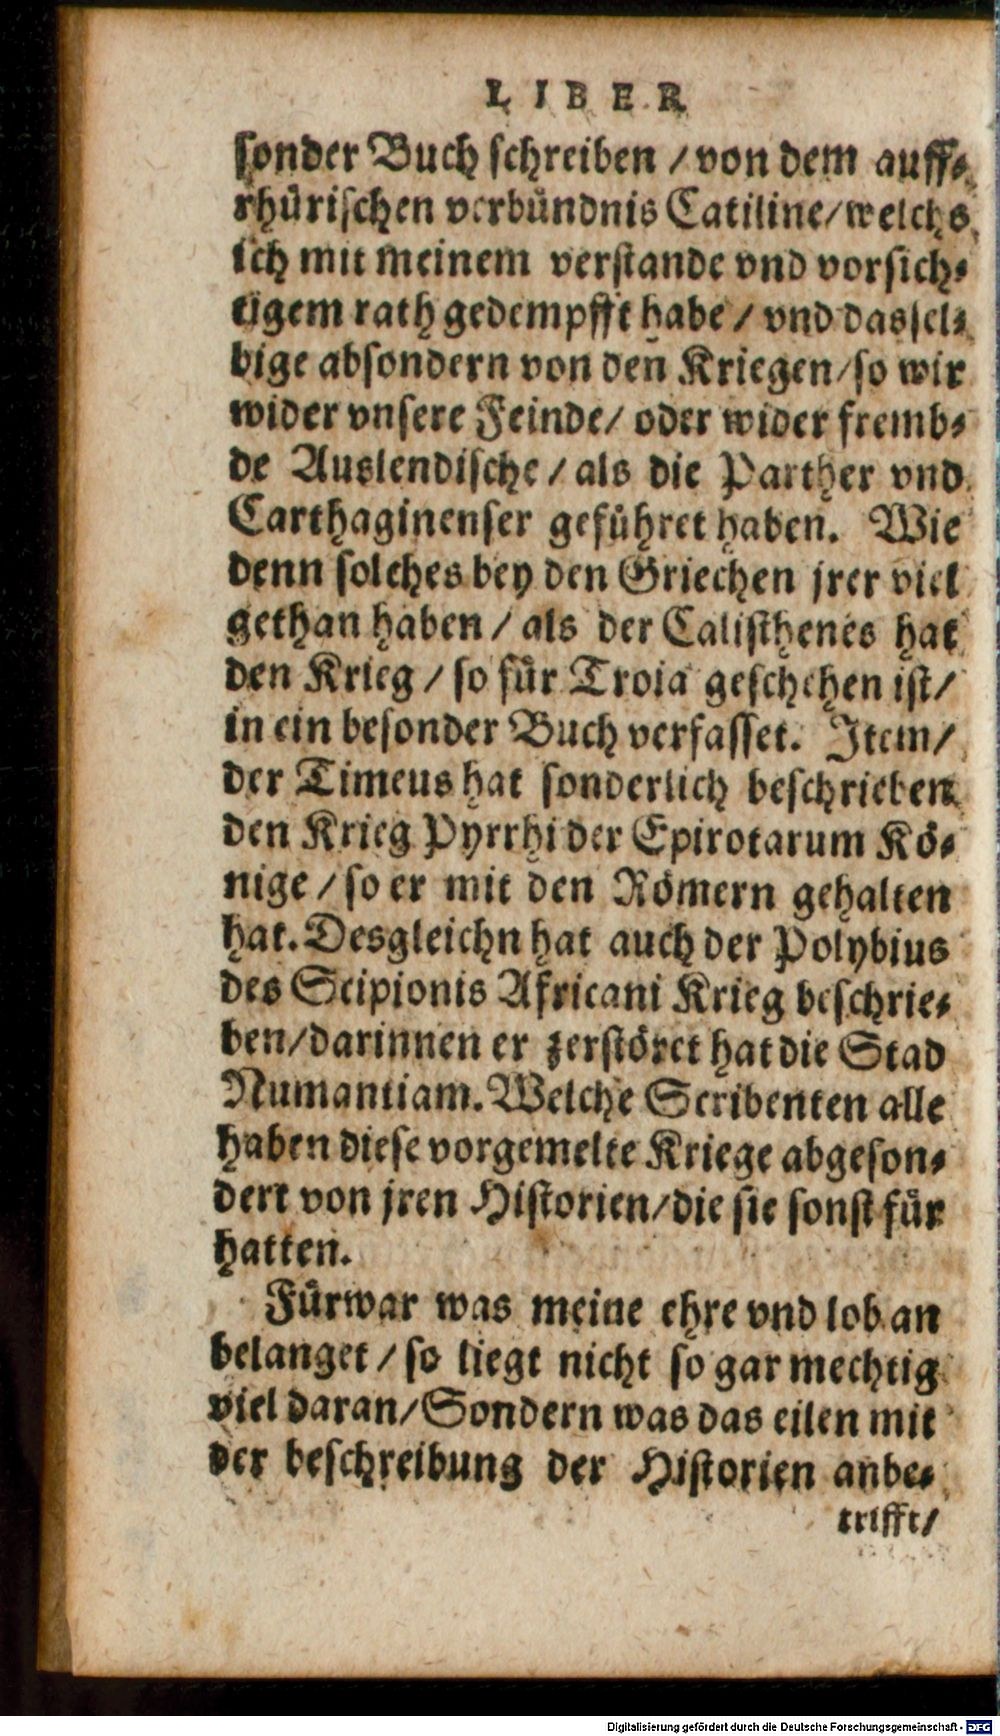 LIBER
sonder Buch schreiben / von dem auff⸗
rhürischen verbündnis Catiline/welchs
ich mit meinem verstande vnd vorsich⸗
tigem rath gedempfft habe / vnd dassel⸗
bige absondern von den Kriegen/so wir
wider vnsere Feinde/ oder wider fremb⸗
de Auslendische / als die Parther vnd
Carthaginenser geführet haben. Wie
denn solches bey den Griechen jrer viel
gethan haben / als der Calisthenes hat
den Krieg / so für Troia geschehen ist/
in ein besonder Buch verfasset. Item/
der Timeus hat sonderlich beschrieben
den Krieg Pyrrhi der Epirotarum Kö⸗
nige / so er mit den Römern gehalten
hat. Desgleichn hat auch der Polybius
des Scipionis Africani Krieg beschrie⸗
ben/darinnen er zerstöret hat die Stad
Numantiam. Welche Scribenten alle
haben diese vorgemelte Kriege abgeson⸗
dert von jren Historien/die sie sonst für
hatten.
Fürwar was meine ehre vnd lob an
belanget / so liegt nicht so gar mechtig
viel daran/Sondern was das eilen mit
der beschreibung der Historien anbe⸗
trifft/
Digitalisierung gefördert durch die Deutsche Forschungsgemeinschaft - DFG